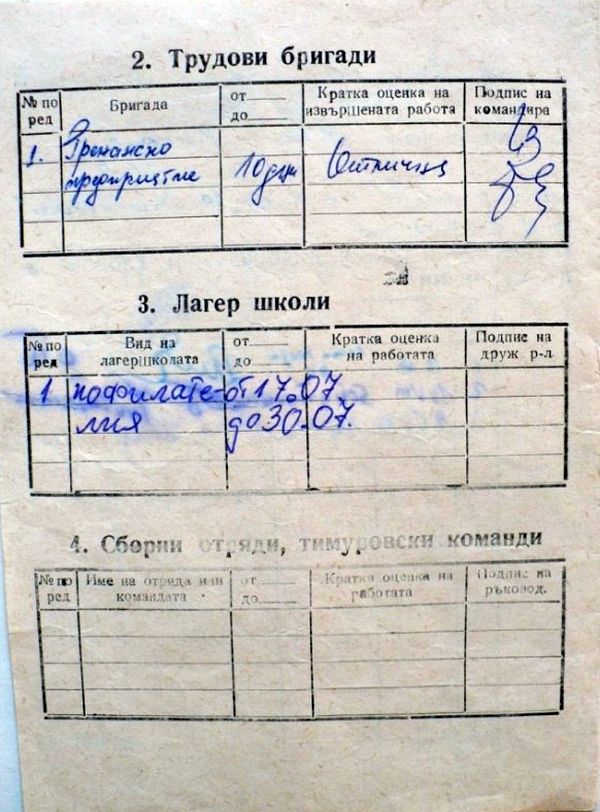 2. Трудови бригади
№ по ред Бригада от до Кратка оценка на извършената работа Подпис на командира
1. предприятие 10 дни Отлична
3. Лагер школи
№ по ред Вид на лагершколата от до Кратка оценка на работата Подпис на друж р-л.
1 по филате- от 17.07.
лия до 30.07.
4. Сборни отряди, тимуровски команди
№ по ред Име на отряда или командата от до Кратка оценка на работата Подпис на ръковод.